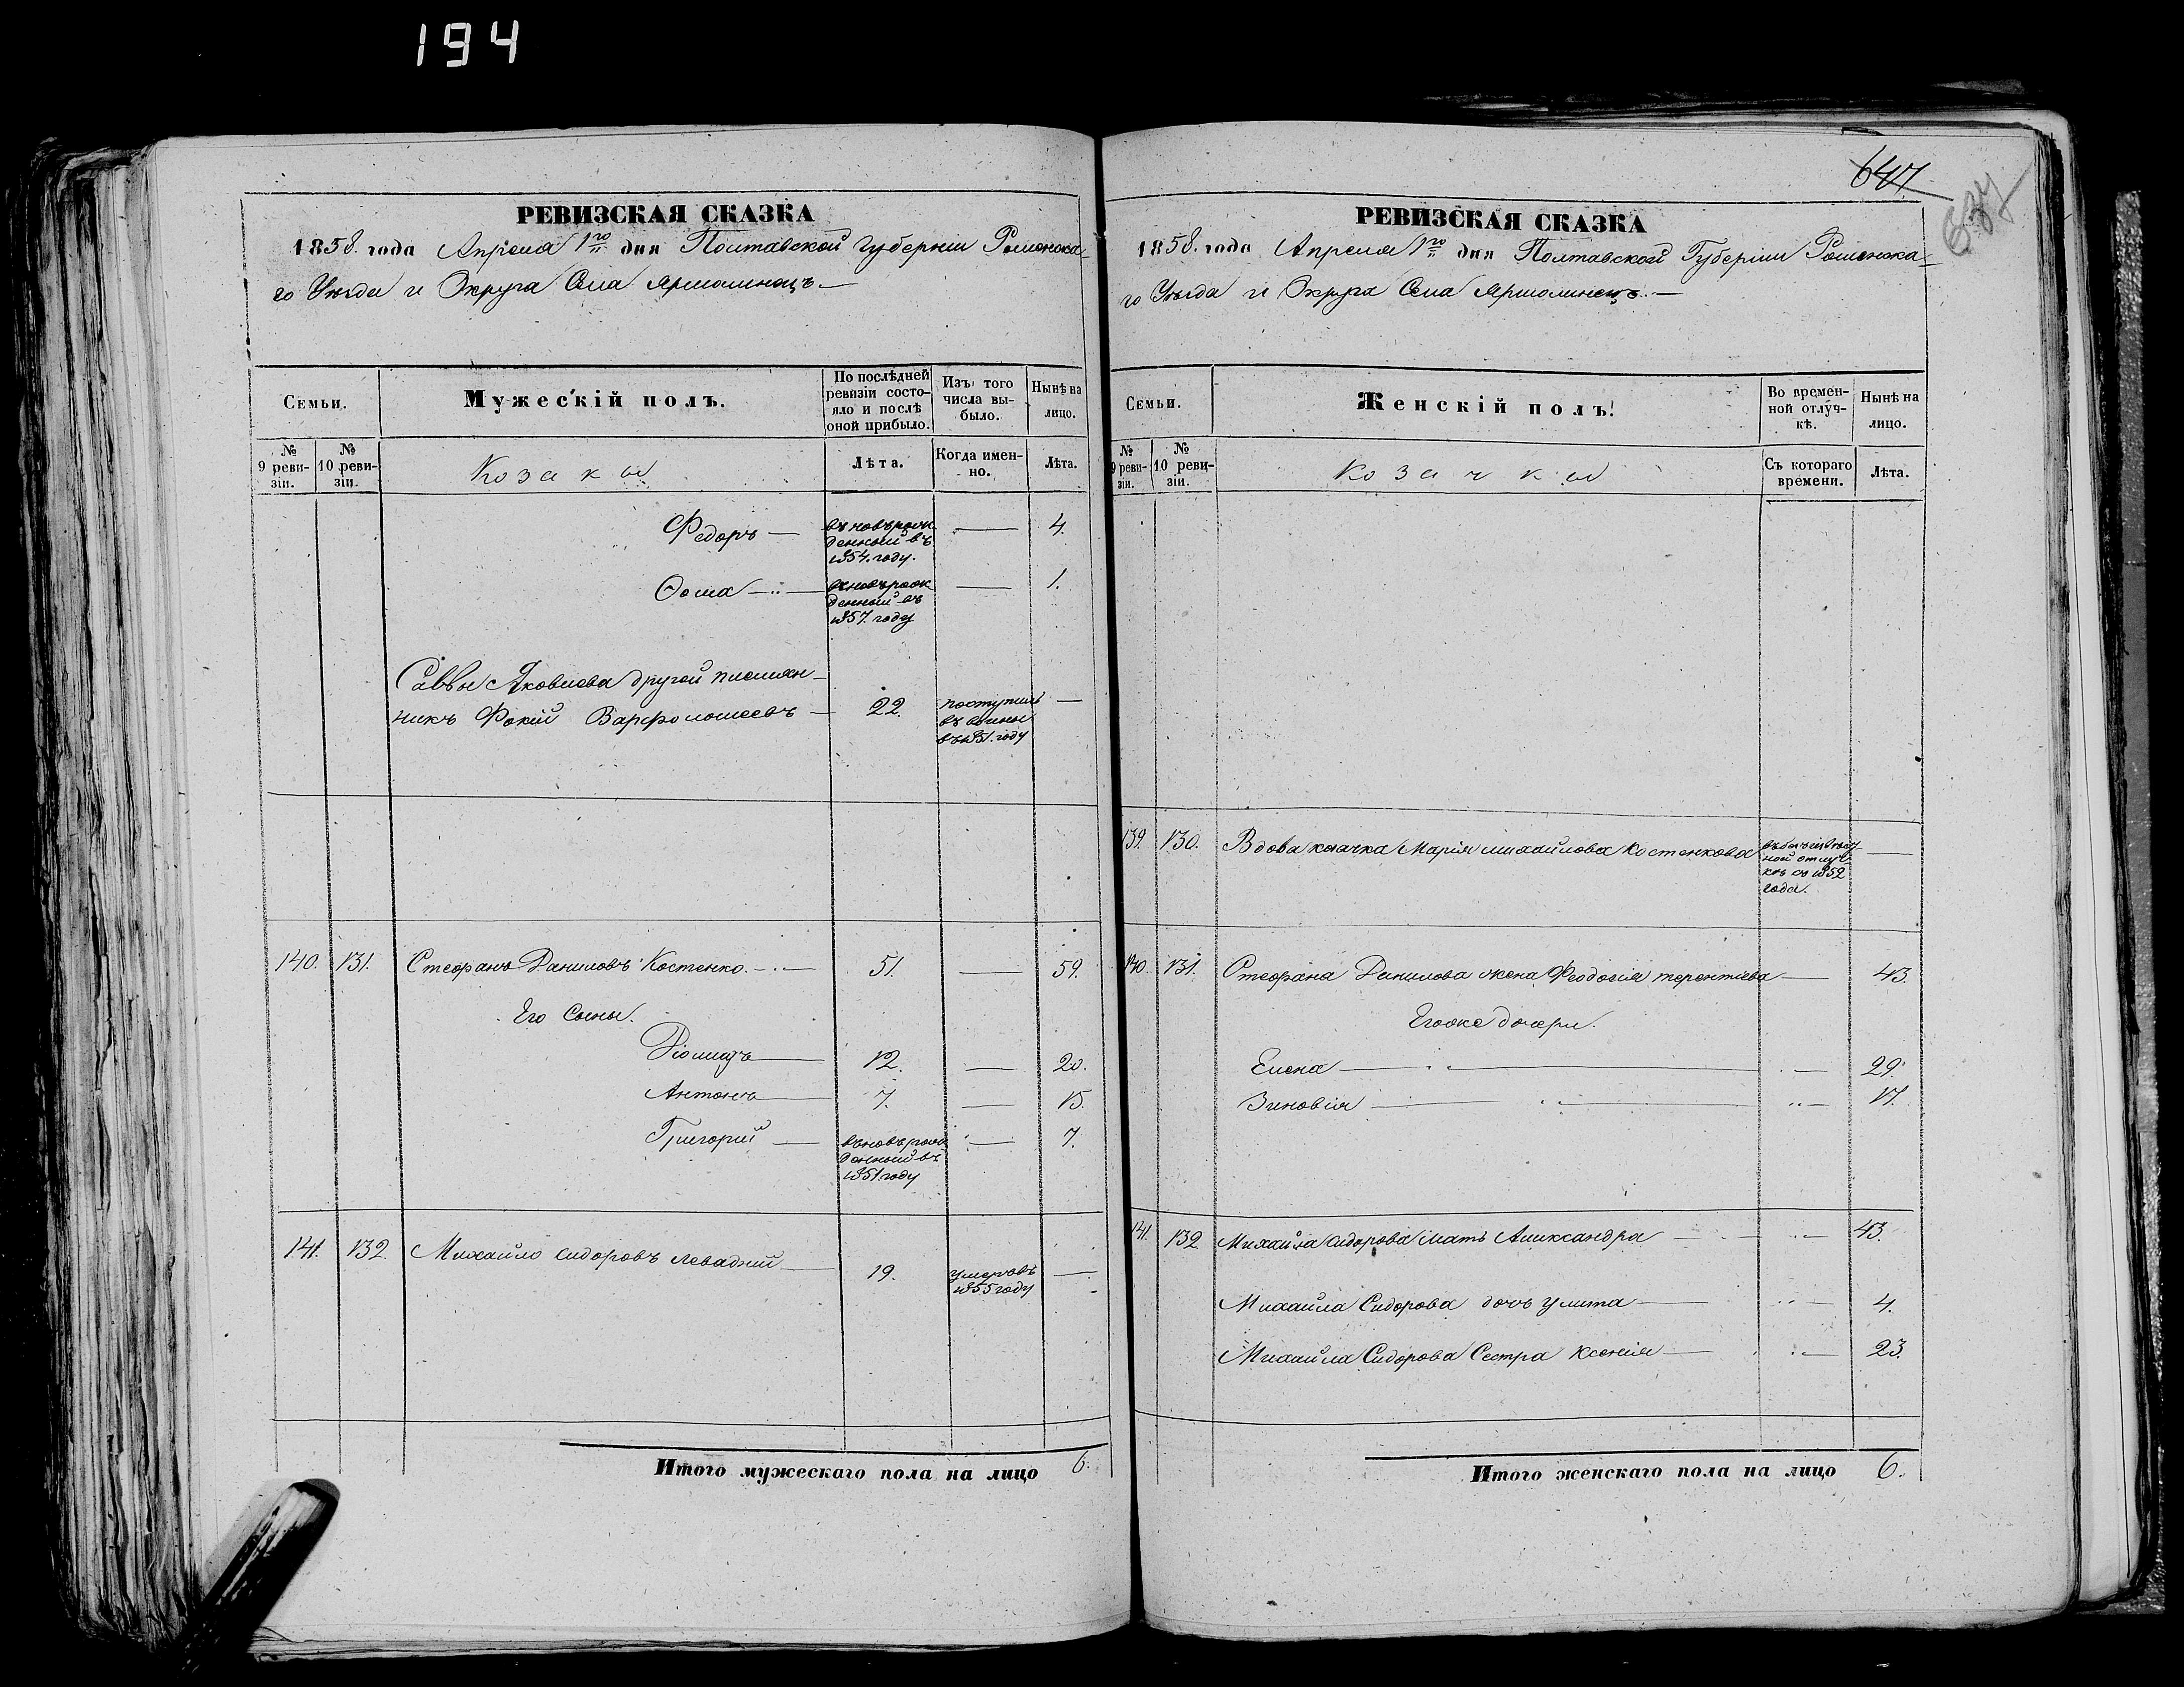 194
РЕВИЗСКАЯ СКАЗКА
1858. года Апреля 1го дня Полтавской Губерніи Роменска-
го Уѣзда и Округа Села Ярмолинецъ
Семьи.
Мужескій полъ.
По послѣдней ревизіи состояло и послѣ оной прибыло.
Изъ того числа выбыло.
Нынѣ на лицо.
№ 9 ревизіи.
№ 10 ревизіи.
Козаки
Лѣта.
Когда именно.
Лѣта.
Федоръ — вновьрожденный въ 1854. году. — 4.
Ѳома — вновьрожденный въ 1857. году — 1.
Саввы Яковлева другой племян-
никъ Фокій Варфоломеевъ — 22. поступилъ въ 1851. году —
140. 131. Стефанъ Даниловъ Костенко. — 51. — 59.
Его Сыны.
Діомидъ — 12. — 20.
Антонъ — 7. — 15.
Григорий — вновьрожденный въ 1851 году — 7.
141. 132. Михайло Сидоровъ Левадний — 19. умеръ въ 1855 году —
Итого мужескаго пола на лицо 6.
647
637
РЕВИЗСКАЯ СКАЗКА
1858. года Апреля 1го дня Полтавской Губерніи Роменска-
го Уѣзда и Округа Села Ярмолинецъ.
Семьи.
Женскій полъ.
Во временной отлучкѣ.
Нынѣ на лицо.
№ 9 ревизіи.
№ 10 ревизіи.
Козачки
Съ котораго времени.
Лѣта.
139. 130. Вдова козачка Марія Михайлова Костенкова въ безъизвѣстной отлучкѣ съ 1852 года. —
140. 131. Стефана Данилова жена Феодосія Терентіева — 43.
Егоже дочери.
Елена — 29.
Зиновія — 17.
141. 132. Михайла Сидорова мать Александра — 43.
Михайла Сидорова дочь Улита — 4.
Михайла Сидорова Сестра Ксенія — 23.
Итого женскаго пола на лицо 6.